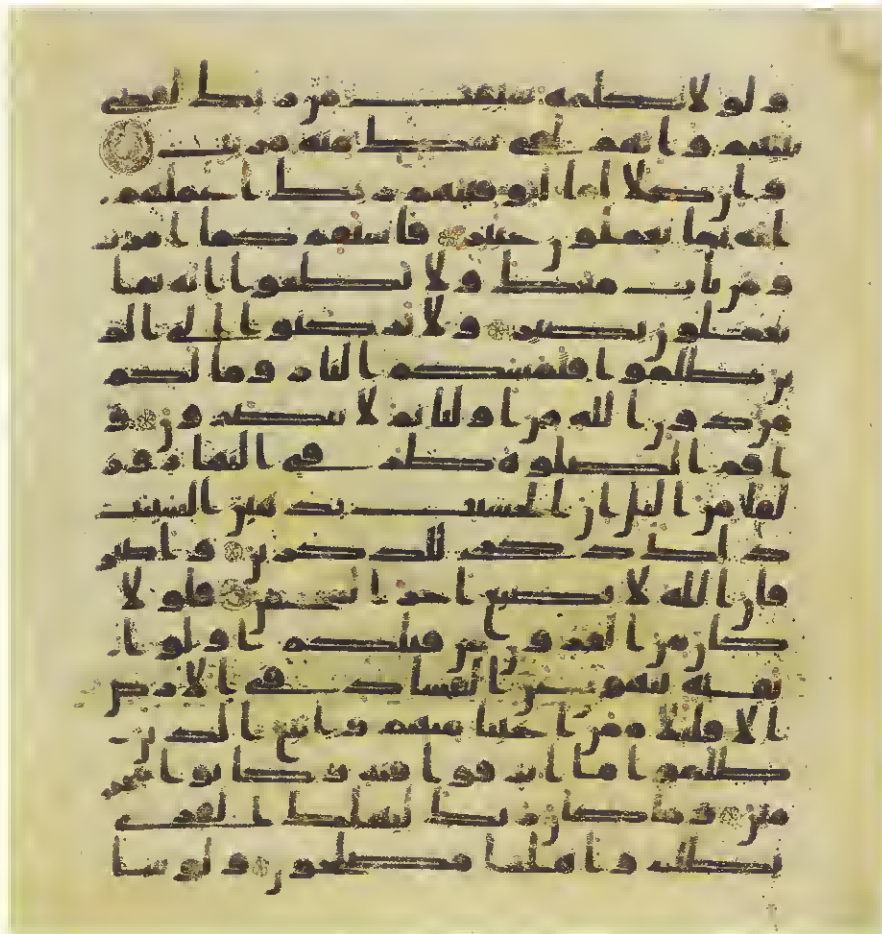 ولولا كلمة سبقت من ربك لقضي
بينهم وانهم لفي شك منه مريب
وان كلا لما ليوفينهم ربك اعملهم
انه بما يعملون خبير فاستقم كما امرت
ومن تاب معك ولا تطغوا انه بما
تعملون بصير ولا تركنوا الى الذ
ين ظلموا فتمسكم النار وما لكم
من دون الله من اوليا ثم لا تنصرون و
اقم الصلوة طرفي النهار وز
لفا من اليل ان الحسنت يذهبن السيت
ذلك ذكرى للذكرين واصبر
فان الله لا يضيع اجر المحسنين فلولا
كان من القرون من قبلكم اولوا
بقية ينهون عن الفساد في الارض
الا قليلا ممن انجينا منهم واتبع الذين
ظلموا ما اترفوا فيه وكانوا مجر
مين وما كان ربك ليهلك القرى
بظلم واهلها مصلحون ولو شا